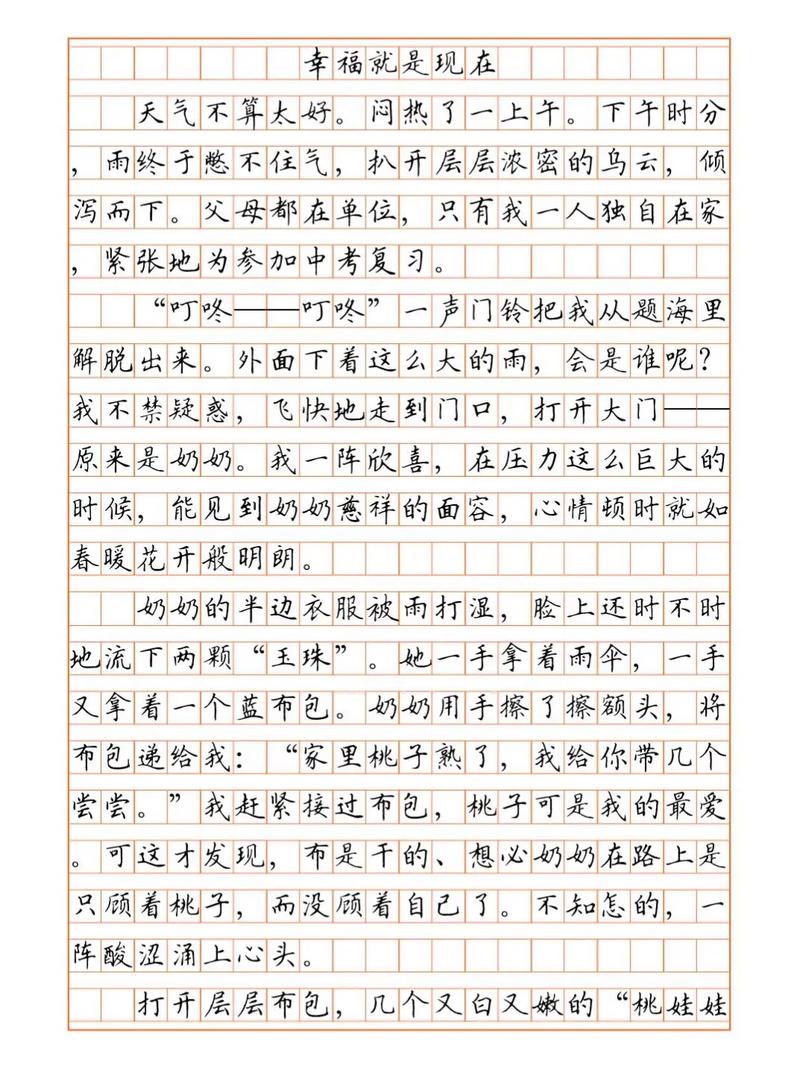 幸福就是现在
天气不算太好。闷热了一上午。下午时分
，雨终于憋不住气，扒开层层浓密的乌云，倾
泻而下。父母都在单位，只有我一人独自在家
，紧张地为参加中考复习。
“叮咚——叮咚”一声门铃把我从题海里
解脱出来。外面下着这么大的雨，会是谁呢？
我不禁疑惑，飞快地走到门口，打开大门——
原来是奶奶。我一阵欣喜，在压力这么巨大的
时候，能见到奶奶慈祥的面容，心情顿时就如
春暖花开般明朗。
奶奶的半边衣服被雨打湿，脸上还时不时
地流下两颗“玉珠”。她一手拿着雨伞，一手
又拿着一个蓝布包。奶奶用手擦了擦额头，将
布包递给我：“家里桃子熟了，我给你带几个
尝尝。”我赶紧接过布包，桃子可是我的最爱
。可这才发现，布是干的、想必奶奶在路上是
只顾着桃子，而没顾着自己了。不知怎的，一
阵酸涩涌上心头。
打开层层布包，几个又白又嫩的“桃娃娃